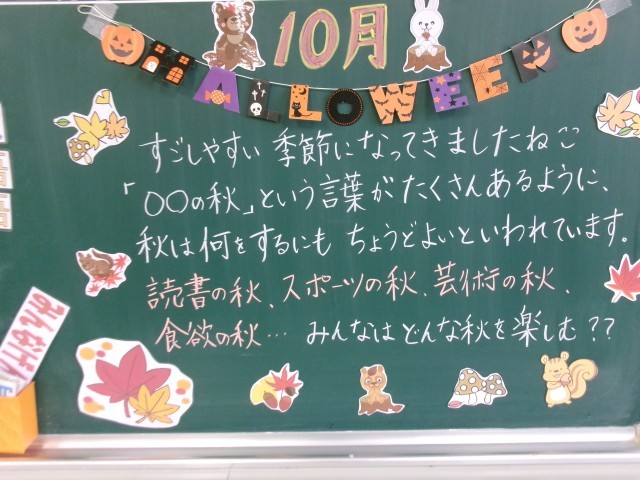 10月
HALLOWEEN
すごしやすい季節になってきましたね
「〇〇の秋」という言葉がたくさんあるように、
秋は何をするにもちょうどよいといわれています。
読書の秋、スポーツの秋、芸術の秋、
食欲の秋… みんなはどんな秋を楽しむ??